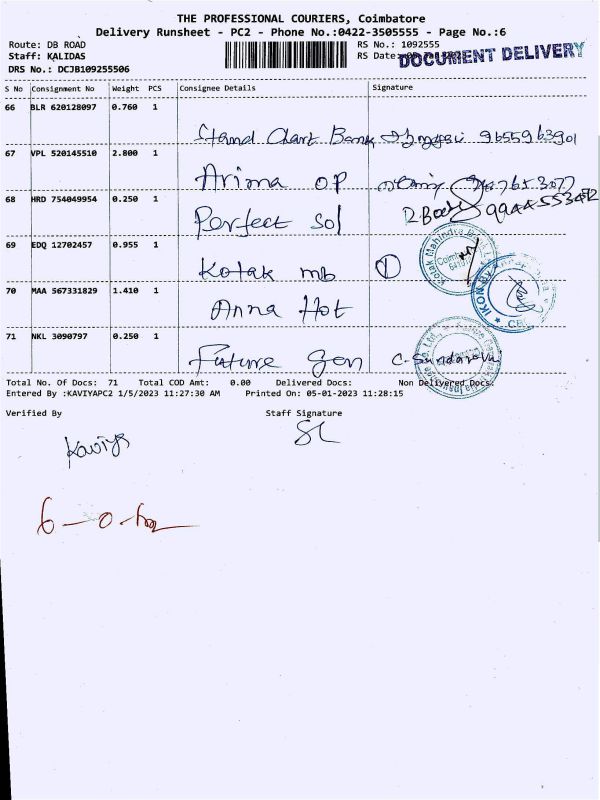 THE PROFESSIONAL COURIERS, Coimbatore
Delivery Runsheet - PC2 - Phone No.:0422-3505555 - Page No.:6
Route: DB ROAD
RS No.: 1092555
Staff: KALIDAS
RS Date:
DOCUMENT DELIVERY
DRS No.: DCJB109255506
S No Consignment No Weight PCS Consignee Details Signature
66 BLR 620128097 0.760 1
Stand Chart Bank 9655963901
67 VPL 520145510 2.800 1
Arima OP
68 HRD 754049954 0.250 1
Perfect Sol
69 EDQ 12702457 0.955 1
Kotak mb 1
70 MAA 567331829 1.410 1
Anna Hot
71 NKL 3090797 0.250 1
Future Gen
Total No. Of Docs: 71 Total COD Amt: 0.00 Delivered Docs: Non Delivered Docs:
Entered By :KAVIYAPC2 1/5/2023 11:27:30 AM Printed On: 05-01-2023 11:28:15
Verified By Staff Signature
Kaviya